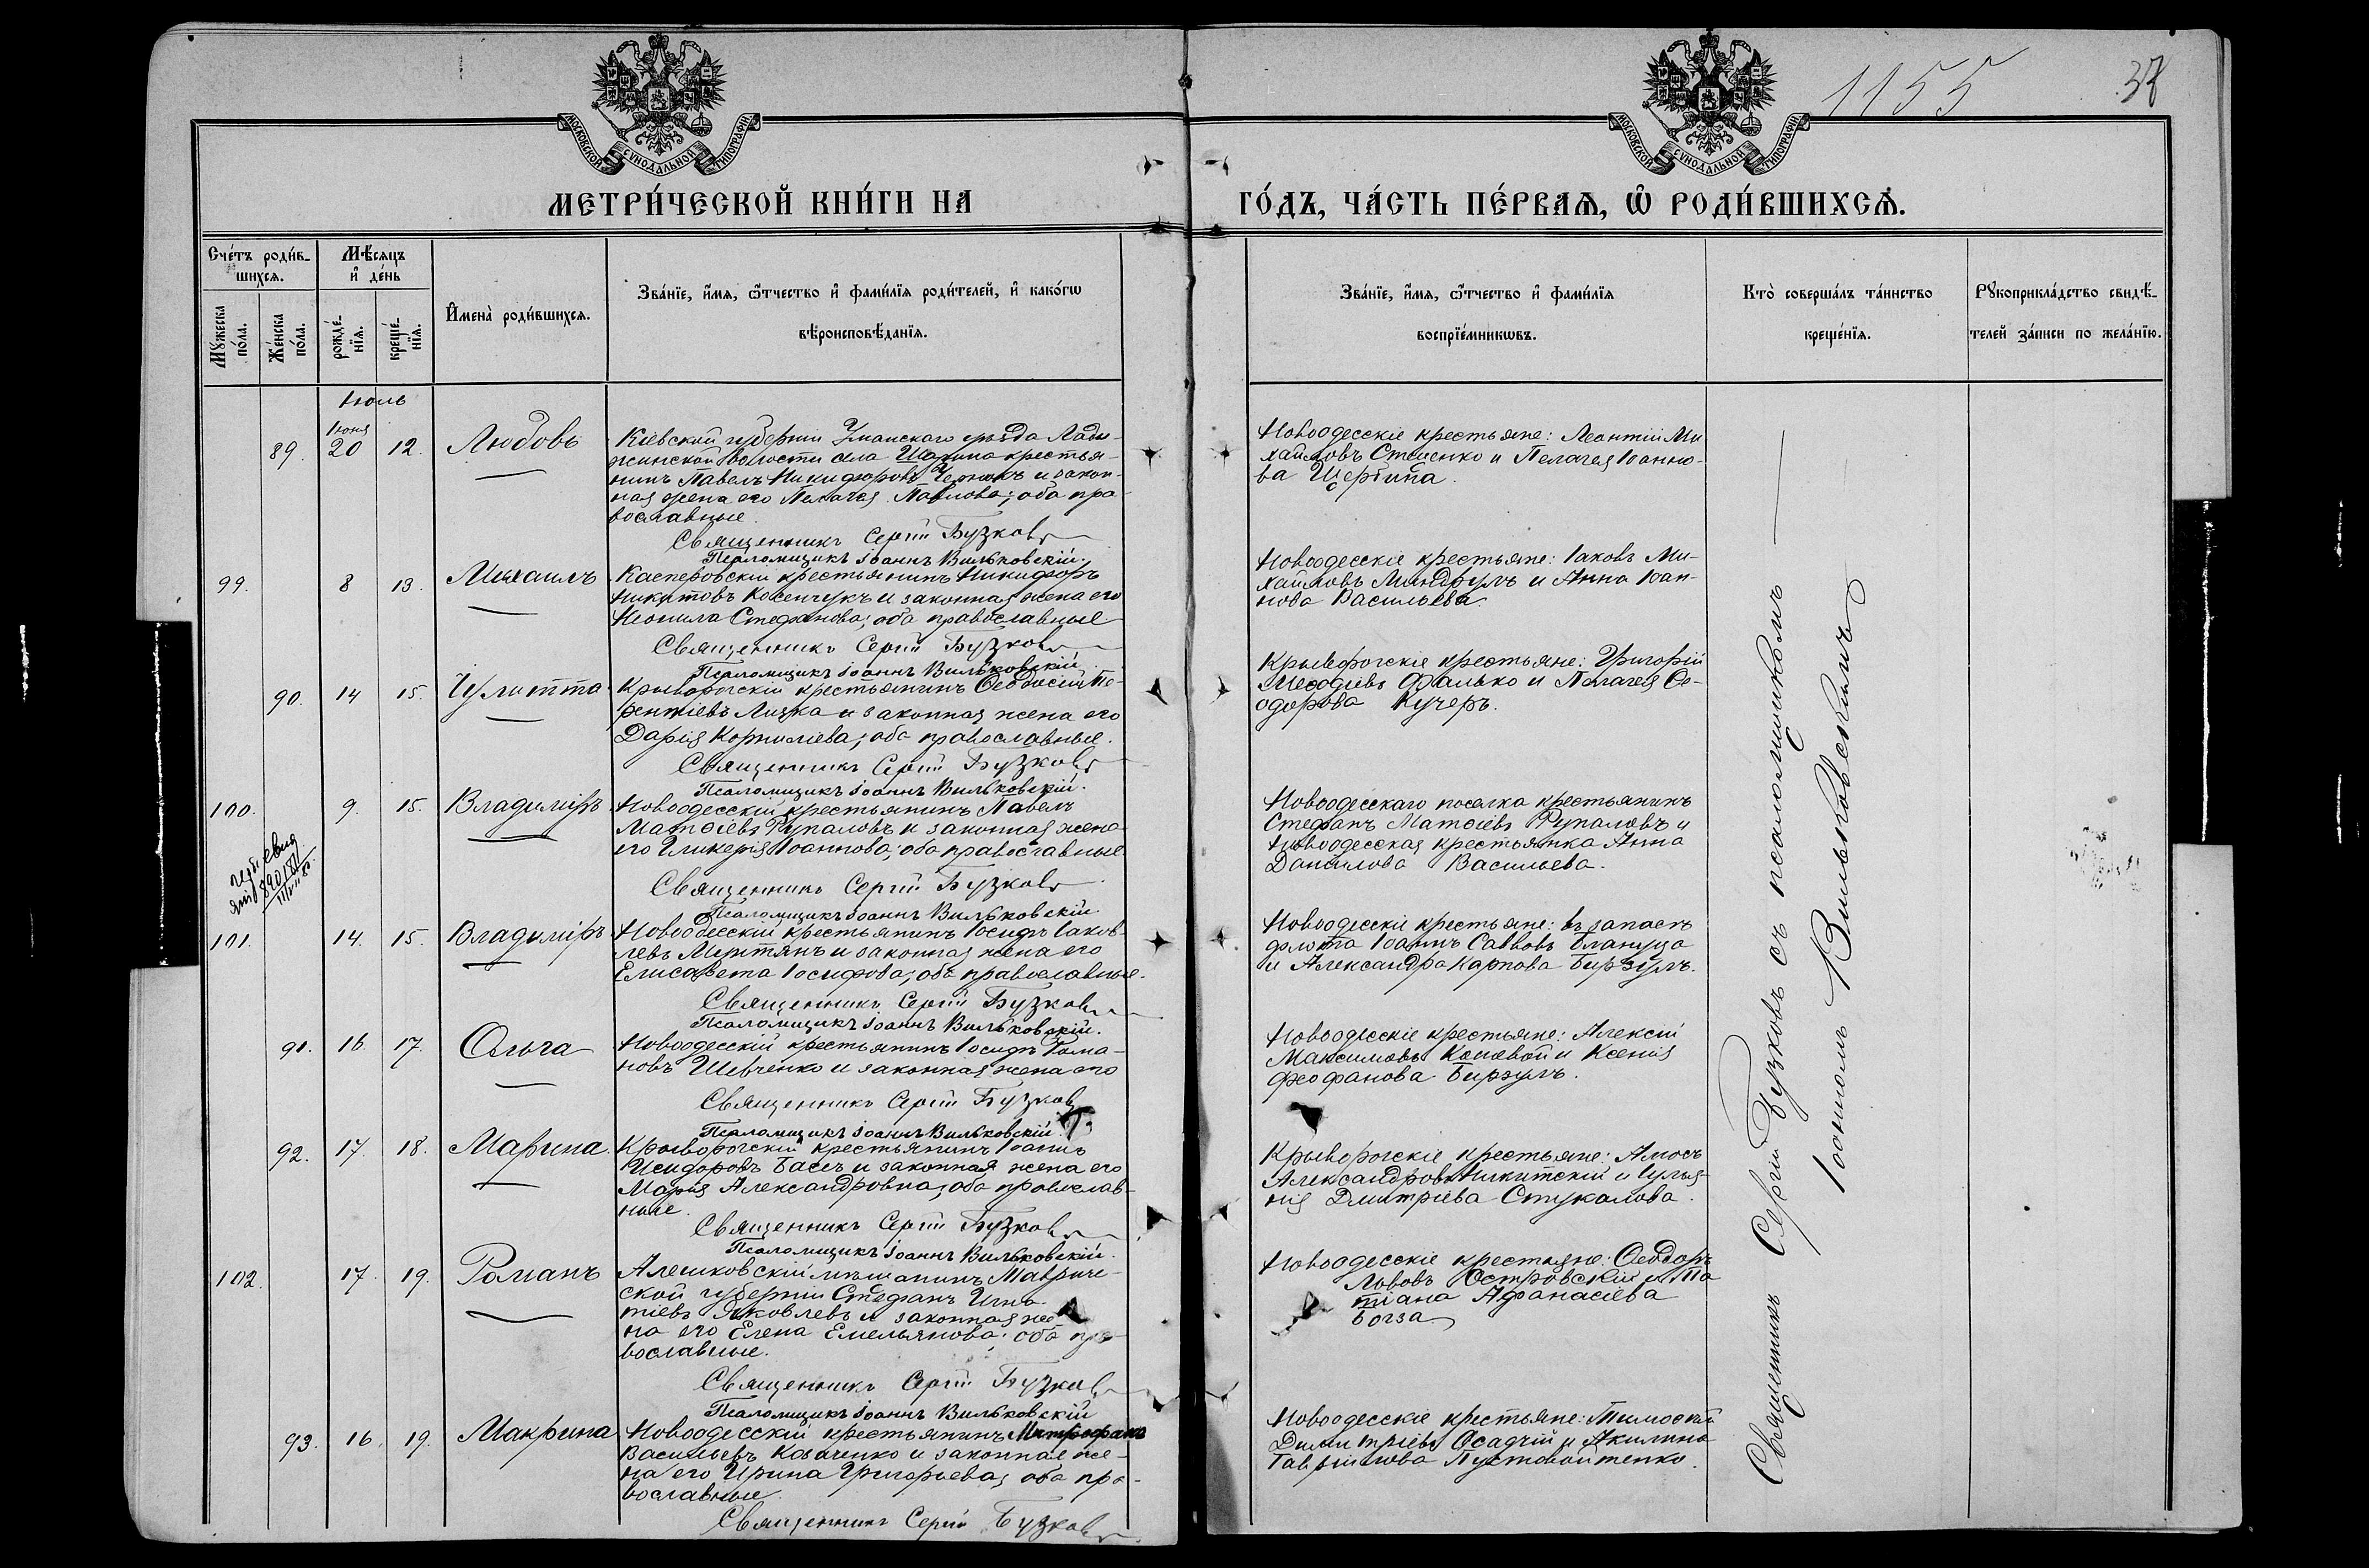 1155
37
МОСКОВСКОЙ СѴНОДАЛЬНОЙ ТИПОГРАФІИ
МОСКОВСКОЙ СѴНОДАЛЬНОЙ ТИПОГРАФІИ
МЕТРИ́ЧЕСКОЙ КНИ́ГИ НА
ГО́ДЪ, ЧА́СТЬ ПЕ́РВАѦ, Ѡ РОДИ́ВШИХСѦ.
Сче́тъ роди́в-
шихсѧ.
Мꙋжеска по́ла.
Же́нска по́ла.
Мѣ́сѧцъ
и҆ де́нь
рожде́-
нїѧ.
креще́-
нїѧ.
И҆мена̀ роди́вшихсѧ.
Зва́нїе, и҆́мѧ, ѻ҆́тчество и҆ фами́лїѧ роди́телей, и҆ како́гѡ
вѣроисповѣ́данїѧ.
Зва́нїе, и҆́мѧ, ѻ҆́тчество и҆ фами́лїѧ
воспрїе́мникѡвъ.
Кто̀ соверша́лъ та́инство
креще́нїѧ.
Рꙋкоприкла́дство свидѣ́-
телей за́писи по жела́нїю.
Іюль
Іюня
89. 20 12. Любовь
Кіевской губерніи Уманскаго уѣзда Лады-
жинской волости села Шарина крестья-
нинъ Павелъ Никифоровъ и закон-
ная жена его Пелагея Павлова; оба пра-
вославные.
Священникъ Сергій Бузковъ
Псаломщикъ Іоаннъ Вильковскій.
Новоодесскіе крестьяне: Леонтій Ми
хайловъ Стеценко и Пелагея Іоанно-
ва Щербина.
99. 8 13. Михаилъ
Касперовскій крестьянинъ Никифоръ
Никитовъ Косенчукъ и законная жена его
Неонила Стефанова; оба православные
Священникъ Сергій Бузковъ
Псаломщикъ Іоаннъ Вильковскій.
Новоодесскіе крестьяне: Іаковъ Ми-
хайловъ Миндрулъ и Анна Іоан-
нова Васильева.
90. 14 15. Іулитта
Криворогскій крестьянинъ Ѳеодосій Те-
рентіевъ Лизка и законная жена его
Дарія Корниліева; оба православные.
Священникъ Сергій Бузковъ
Псаломщикъ Іоаннъ Вильковскій.
Криворогскіе крестьяне: Григорій
Меѳодіевъ Фалько и Пелагея Ѳе-
одорова Кучеръ.
100. 9. 15. Владиміръ
Новоодесскій крестьянинъ Павелъ
Матѳіевъ Рупаловъ и законная жена
его Гликерія Іоаннова; оба православные
Священникъ Сергій Бузковъ
Псаломщикъ Іоаннъ Вильковскій
Новоодесскаго поселка крестьянинъ
Стефанъ Матѳіевъ Рупаловъ и
Новоодесская крестьянка Анна
Данилова Васильева.
101. 14. 15. Владиміръ
Новоодесскій крестьянинъ Іосифъ Іаков-
левъ и законная жена его
Елисавета Іосифова; оба православные.
Священникъ Сергій Бузковъ
Псаломщикъ Іоаннъ Вильковскій.
Новоодесскіе крестьяне: въ запасѣ
флота Іоаннъ Саввовъ Блануца
и Александра Карпова Бирзулъ.
91. 16 17. Ольга
Новоодесскій крестьянинъ Іосифъ Рома-
новъ Шевченко и законная жена его
Священникъ Сергій Бузковъ
Псаломщикъ Іоаннъ Вильковскій.
Новоодесскіе крестьяне: Алексій
Максимовъ Кошевой и Ксенія
Феофанова Бирзулъ.
92. 17. 18. Марина.
Криворогскій крестьянинъ Іоаннъ
Исидоровъ Басъ и законная жена его
Марія Александровна; оба православ-
ные.
Священникъ Сергій Бузковъ
Псаломщикъ Іоаннъ Вильковскій.
Криворогскіе крестьяне: Амосъ
Александровъ Никитскій и Іуліа-
нія Димитріева Стукалова.
102. 17. 19. Романъ
Алешковскій мѣщанинъ Тавриче-
ской губерніи Стефанъ Игна-
тіевъ Яковлевъ и законная же-
на его Елена Емельянова; оба пра-
вославные.
Священникъ Сергій Бузковъ
Псаломщикъ Іоаннъ Вильковскій
Новоодесскіе крестьяне: Ѳеодоръ
Львовъ Островскій и Та
тіана Афанасіева
Богза
93. 16. 19. Макрина
Новоодесскій крестьянинъ Митрофанъ
Васильевъ Коваченко и законная же-
на его Ирина Григорьева; оба пра-
вославные
Священникъ Сергій Бузковъ
Новоодесскіе крестьяне: Тимоѳей
Димитріевъ Осадчій и Акилина
Гавріилова Пустовойтенко.
Священникъ Сергій Бузковъ съ псаломщикомъ
Іоанномъ Вильковскимъ